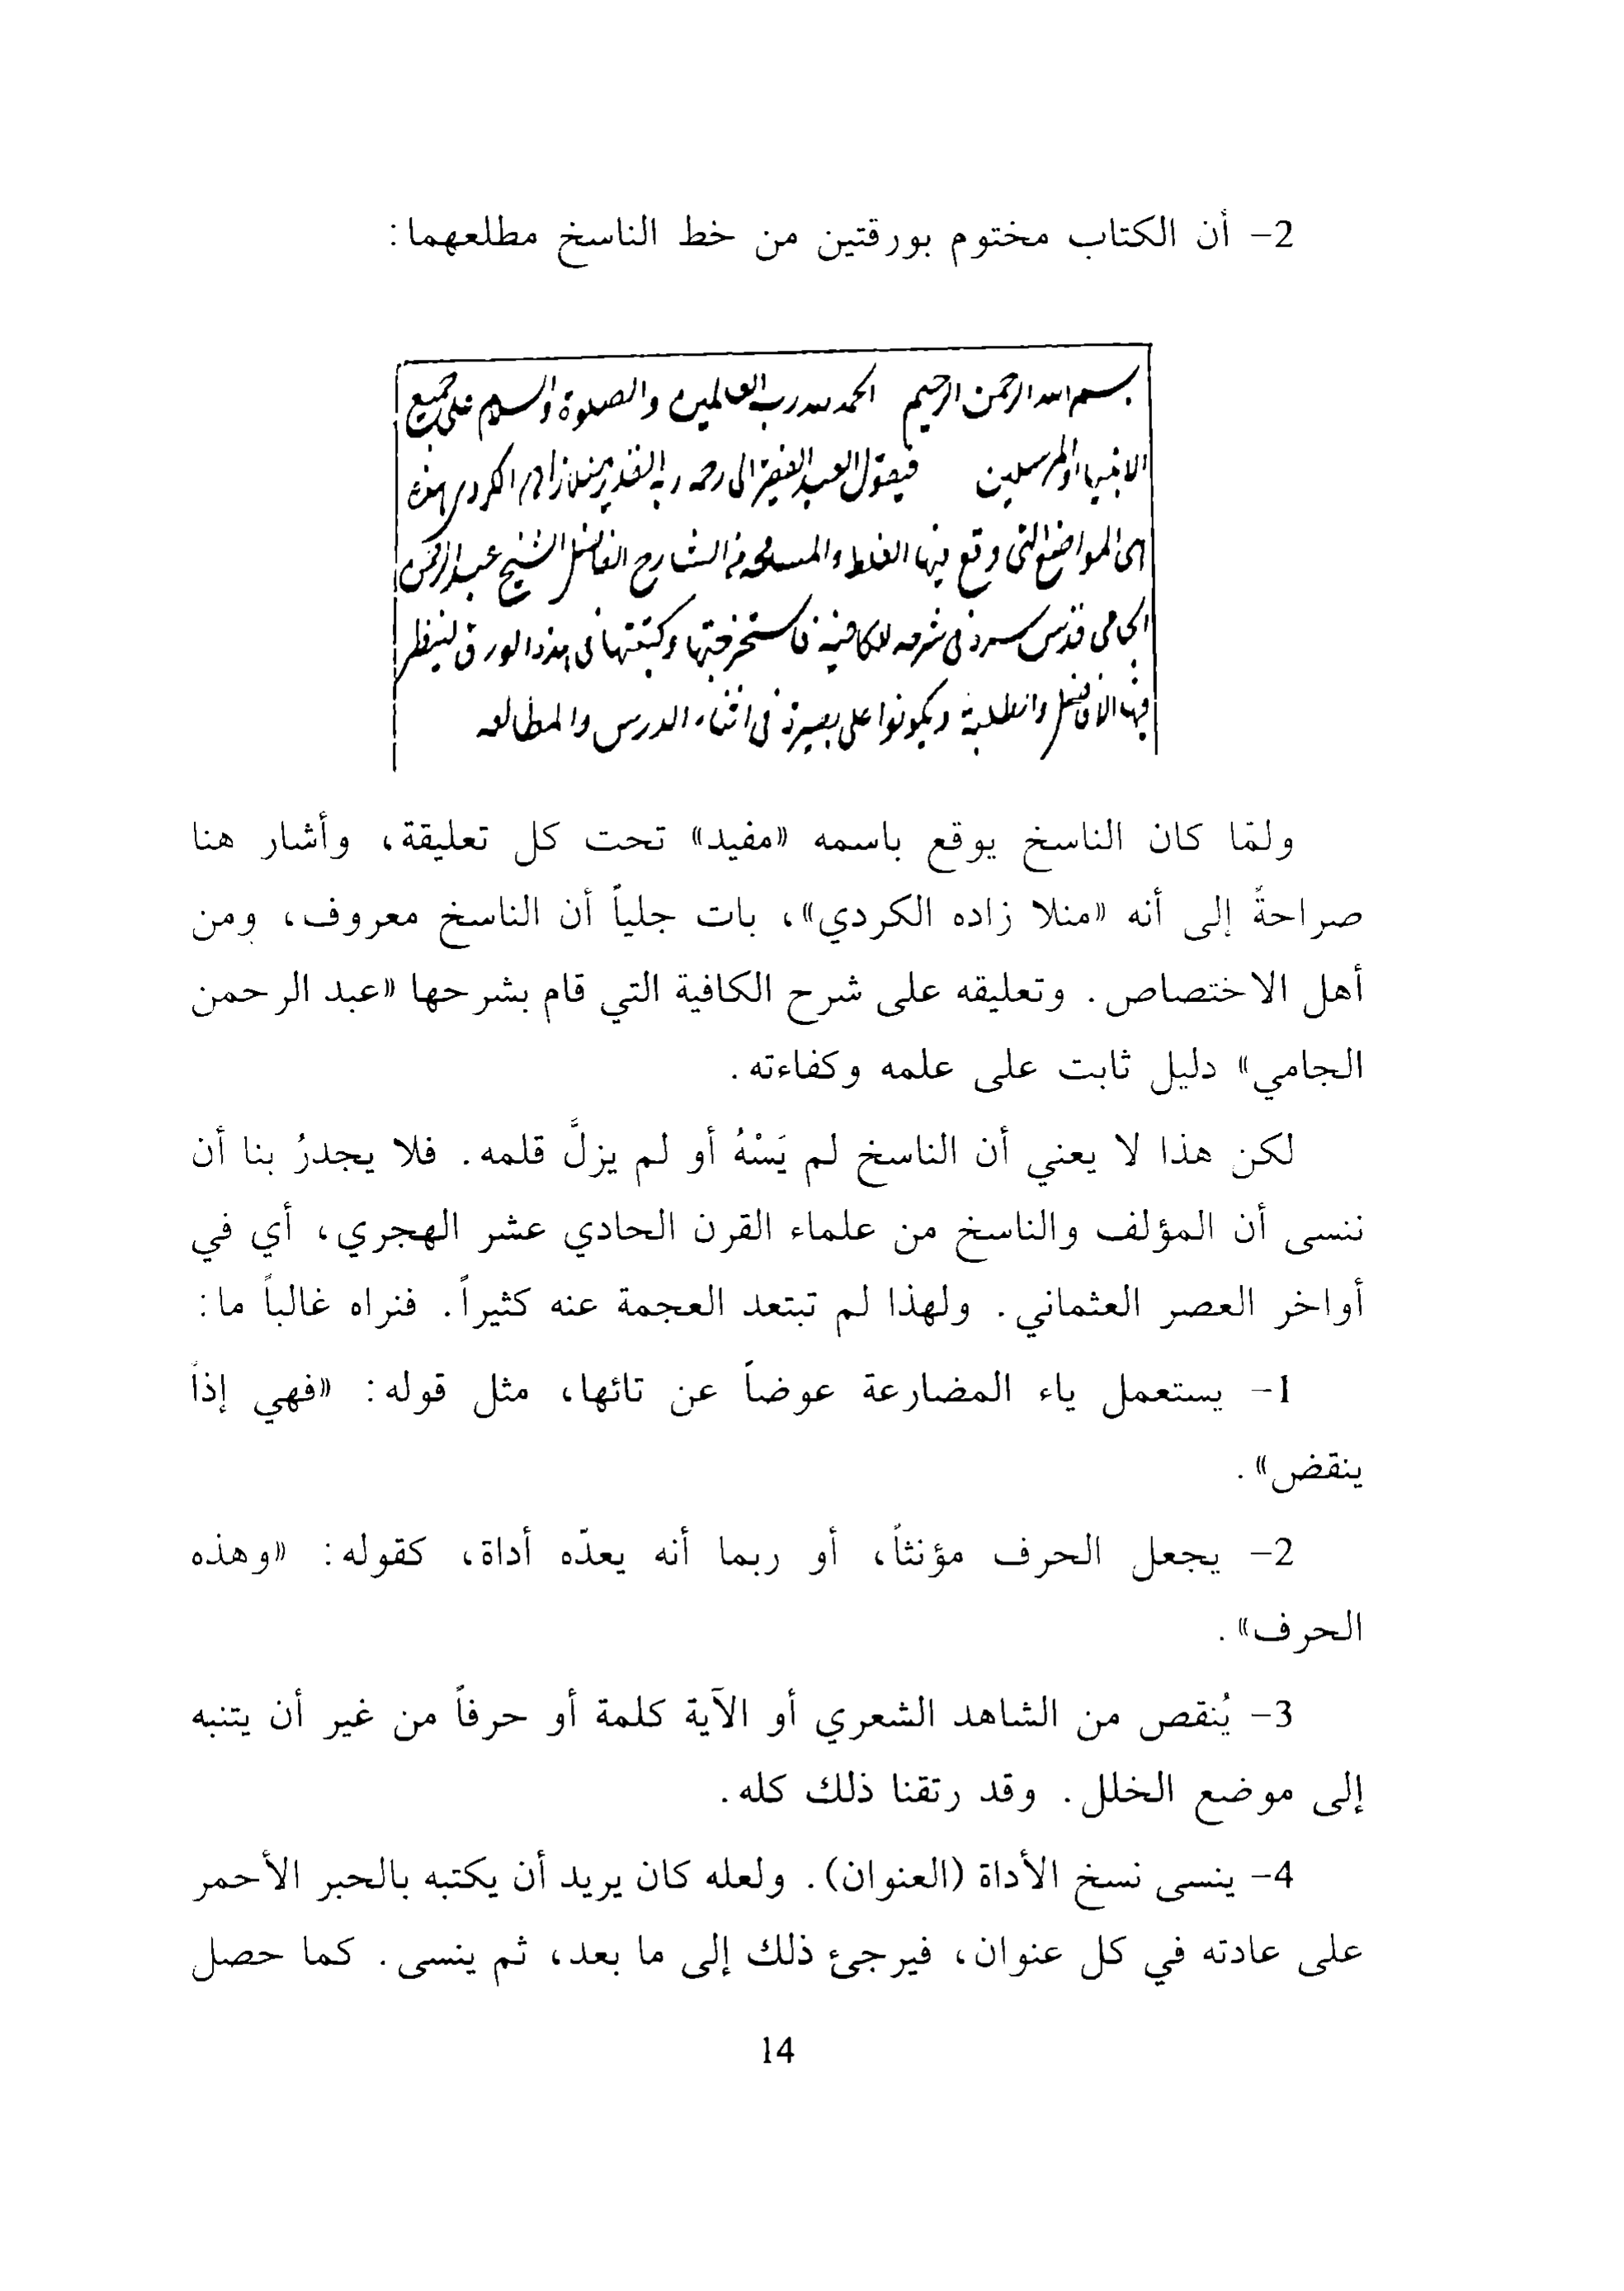 2- أن الكتاب مختوم بورقتين من خط الناسخ مطلعهما:
بسم الله الرحمن الرحيم الحمد لله رب العالمين والصلوة والسلام على جميع
الانبياء والمرسلين فيقول العبد الفقير الى رحمة ربه القدير منلا زاده الكردي هذه
هى المواضع التى وقع فيها الغلط والمسامحة من الشارح الفاضل الشيخ عبد الرحمن
الجامى قدس سره فى شرحه للكافية فاستخرجتها وكتبتها فى هذه الورق لينظر
فيها الافاضل والطلبة ويكونوا على بصيرة فى اثناء الدرس والمطالعه
ولمّا كان الناسخ يوقع باسمه «مفيد» تحت كل تعليقة، وأشار هنا
صراحةً إلى أنه «منلا زاده الكردي»، بات جلياً أن الناسخ معروف، ومن
أهل الاختصاص. وتعليقه على شرح الكافية التي قام بشرحها «عبد الرحمن
الجامي» دليل ثابت على علمه وكفاءته.
لكن هذا لا يعني أن الناسخ لم يَسْهُ أو لم يزلَّ قلمه. فلا يجدرُ بنا أن
ننسى أن المؤلف والناسخ من علماء القرن الحادي عشر الهجري، أي في
أواخر العصر العثماني. ولهذا لم تبتعد العجمة عنه كثيراً. فنراه غالباً ما:
1- يستعمل ياء المضارعة عوضاً عن تائها، مثل قوله: «فهي إذاً
ينقض».
2- يجعل الحرف مؤنثاً، أو ربما أنه يعدّه أداة، كقوله: «وهذه
الحرف».
3- يُنقص من الشاهد الشعري أو الآية كلمة أو حرفاً من غير أن يتنبه
إلى موضع الخلل. وقد رتقنا ذلك كله.
4- ينسى نسخ الأداة (العنوان). ولعله كان يريد أن يكتبه بالحبر الأحمر
على عادته في كل عنوان، فيرجئ ذلك إلى ما بعد، ثم ينسى. كما حصل
14